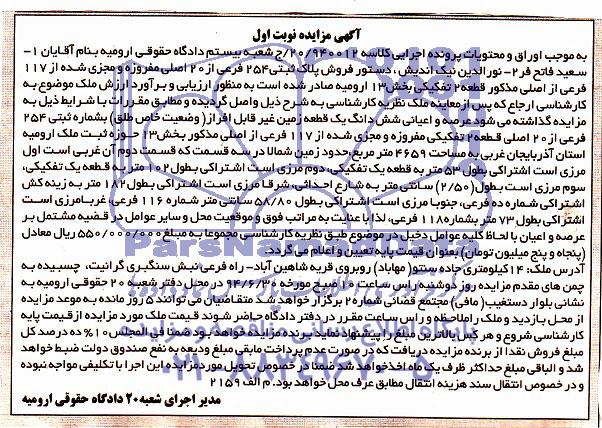 آگهی مزایده نوبت اول
به موجب اوراق و محتویات پرونده اجرایی کلاسه ۲۰/۹۴۰۰۱۲/ج شعبه بیستم دادگاه حقوقی ارومیه بنام آقایان ۱-
سعید فاتح فر ۲- نورالدین نیک اندیش، دستور فروش پلاک ثبتی ۲۵۴ فرعی از ۲۰ اصلی مفروزه و مجزی شده از ۱۱۷
فرعی از اصلی مذکور قطعه ۲ تفکیکی بخش ۱۳ ارومیه صادر شده است به منظور ارزیابی و برآورد ارزش ملک موضوع به
کارشناسی ارجاع که پس از معاینه ملک نظریه کارشناسی به شرح ذیل واصل گردیده و مطابق مقررات با شرایط ذیل به
مزایده گذاشته می شود عرصه و اعیانی شش دانگ یک قطعه زمین غیر قابل افراز (وضعیت خاص طلق) بشماره ثبتی ۲۵۴
فرعی از ۲۰ اصلی قطعه ۲ تفکیکی مفروزه و مجزی شده از ۱۱۷ فرعی از اصلی مذکور بخش ۲۳ حوزه ثبت ملک ارومیه
استان آذربایجان غربی به مساحت ۴۶۵۹ متر مربع حدود زمین شمالا در سه قسمت که قسمت دوم آن غربی است اول
مرزی است اشتراکی بطول ۵۳ متر به قطعه یک تفکیکی، دوم مرزی است اشتراکی بطول ۱۰۲ متر به قطعه یک تفکیکی،
سوم مرزی است بطول (۲/۵۰) سانتی متر به شارع احداثی، شرقا مرزی است اشتراکی بطول ۱۸۲ متر به زینه کش
اشتراکی شماره ده فرعی، جنوبا مرزی است اشتراکی بطول ۵۸/۸۰ سانتی متر شماره ۱۱۶ فرعی، غربا مرزی است
اشتراکی بطول ۷۳ متر بشماره ۱۱۸ فرعی، لذا با عنایت به مراتب فوق و موقعیت محل و سایر عوامل در قضیه مشتمل بر
عرصه و اعیان با لحاظ کلیه عوامل دخیل در موضوع طبق نظریه کارشناسی مجموعا به مبلغ ۵۵۰/۰۰۰/۰۰۰ ریال معادل
(پنجاه و پنج میلیون تومان) بعنوان قیمت پایه تعیین و اعلام می گردد.
آدرس ملک: ۱۴ کیلومتری جاده سنتو (مهاباد) روبروی قریه شاهین آباد- راه فرعی نبش سنگبری گرانیت، چسبیده به
چمن های مقدم مزایده روز دوشنبه راس ساعت ۱۰ صبح مورخه ۹۴/۶/۳۰ در محل دفتر شعبه ۲۰ حقوقی ارومیه به
نشانی بلوار دستغیب (مافی) مجتمع قضائی شماره ۲ برگزار خواهد شد متقاضیان می توانند ۵ روز مانده به موعد مزایده
از محل بازدید و ملک را ملاحظه و راس ساعت مقرر در دفتر دادگاه حاضر شوند قیمت ملک مورد مزایده از قیمت پایه
کارشناسی شروع و هر کس بالاترین مبلغ را پیشنهاد نماید برنده مزایده خواهد بود ضمنا فی المجلس ۱۰ ده درصد کل
مبلغ فروش نقدا از برنده مزایده دریافت که در صورت عدم پرداخت مابقی مبلغ ودیعه به نفع صندوق دولت ضبط خواهد
شد و الباقی مبلغ حداکثر ظرف یک ماه اخذ خواهد شد ضمنا در خصوص تحویل مورد مزایده این اجرا با تکلیفی مواجه نبوده
و در خصوص انتقال سند هزینه انتقال مطابق عرف محل خواهد بود. م الف ۲۱۵۹
مدیر اجرای شعبه ۲۰ دادگاه حقوقی ارومیه
ParsNamadData
۰۲۱-۸۸۳۴۹۶۷۰-۵